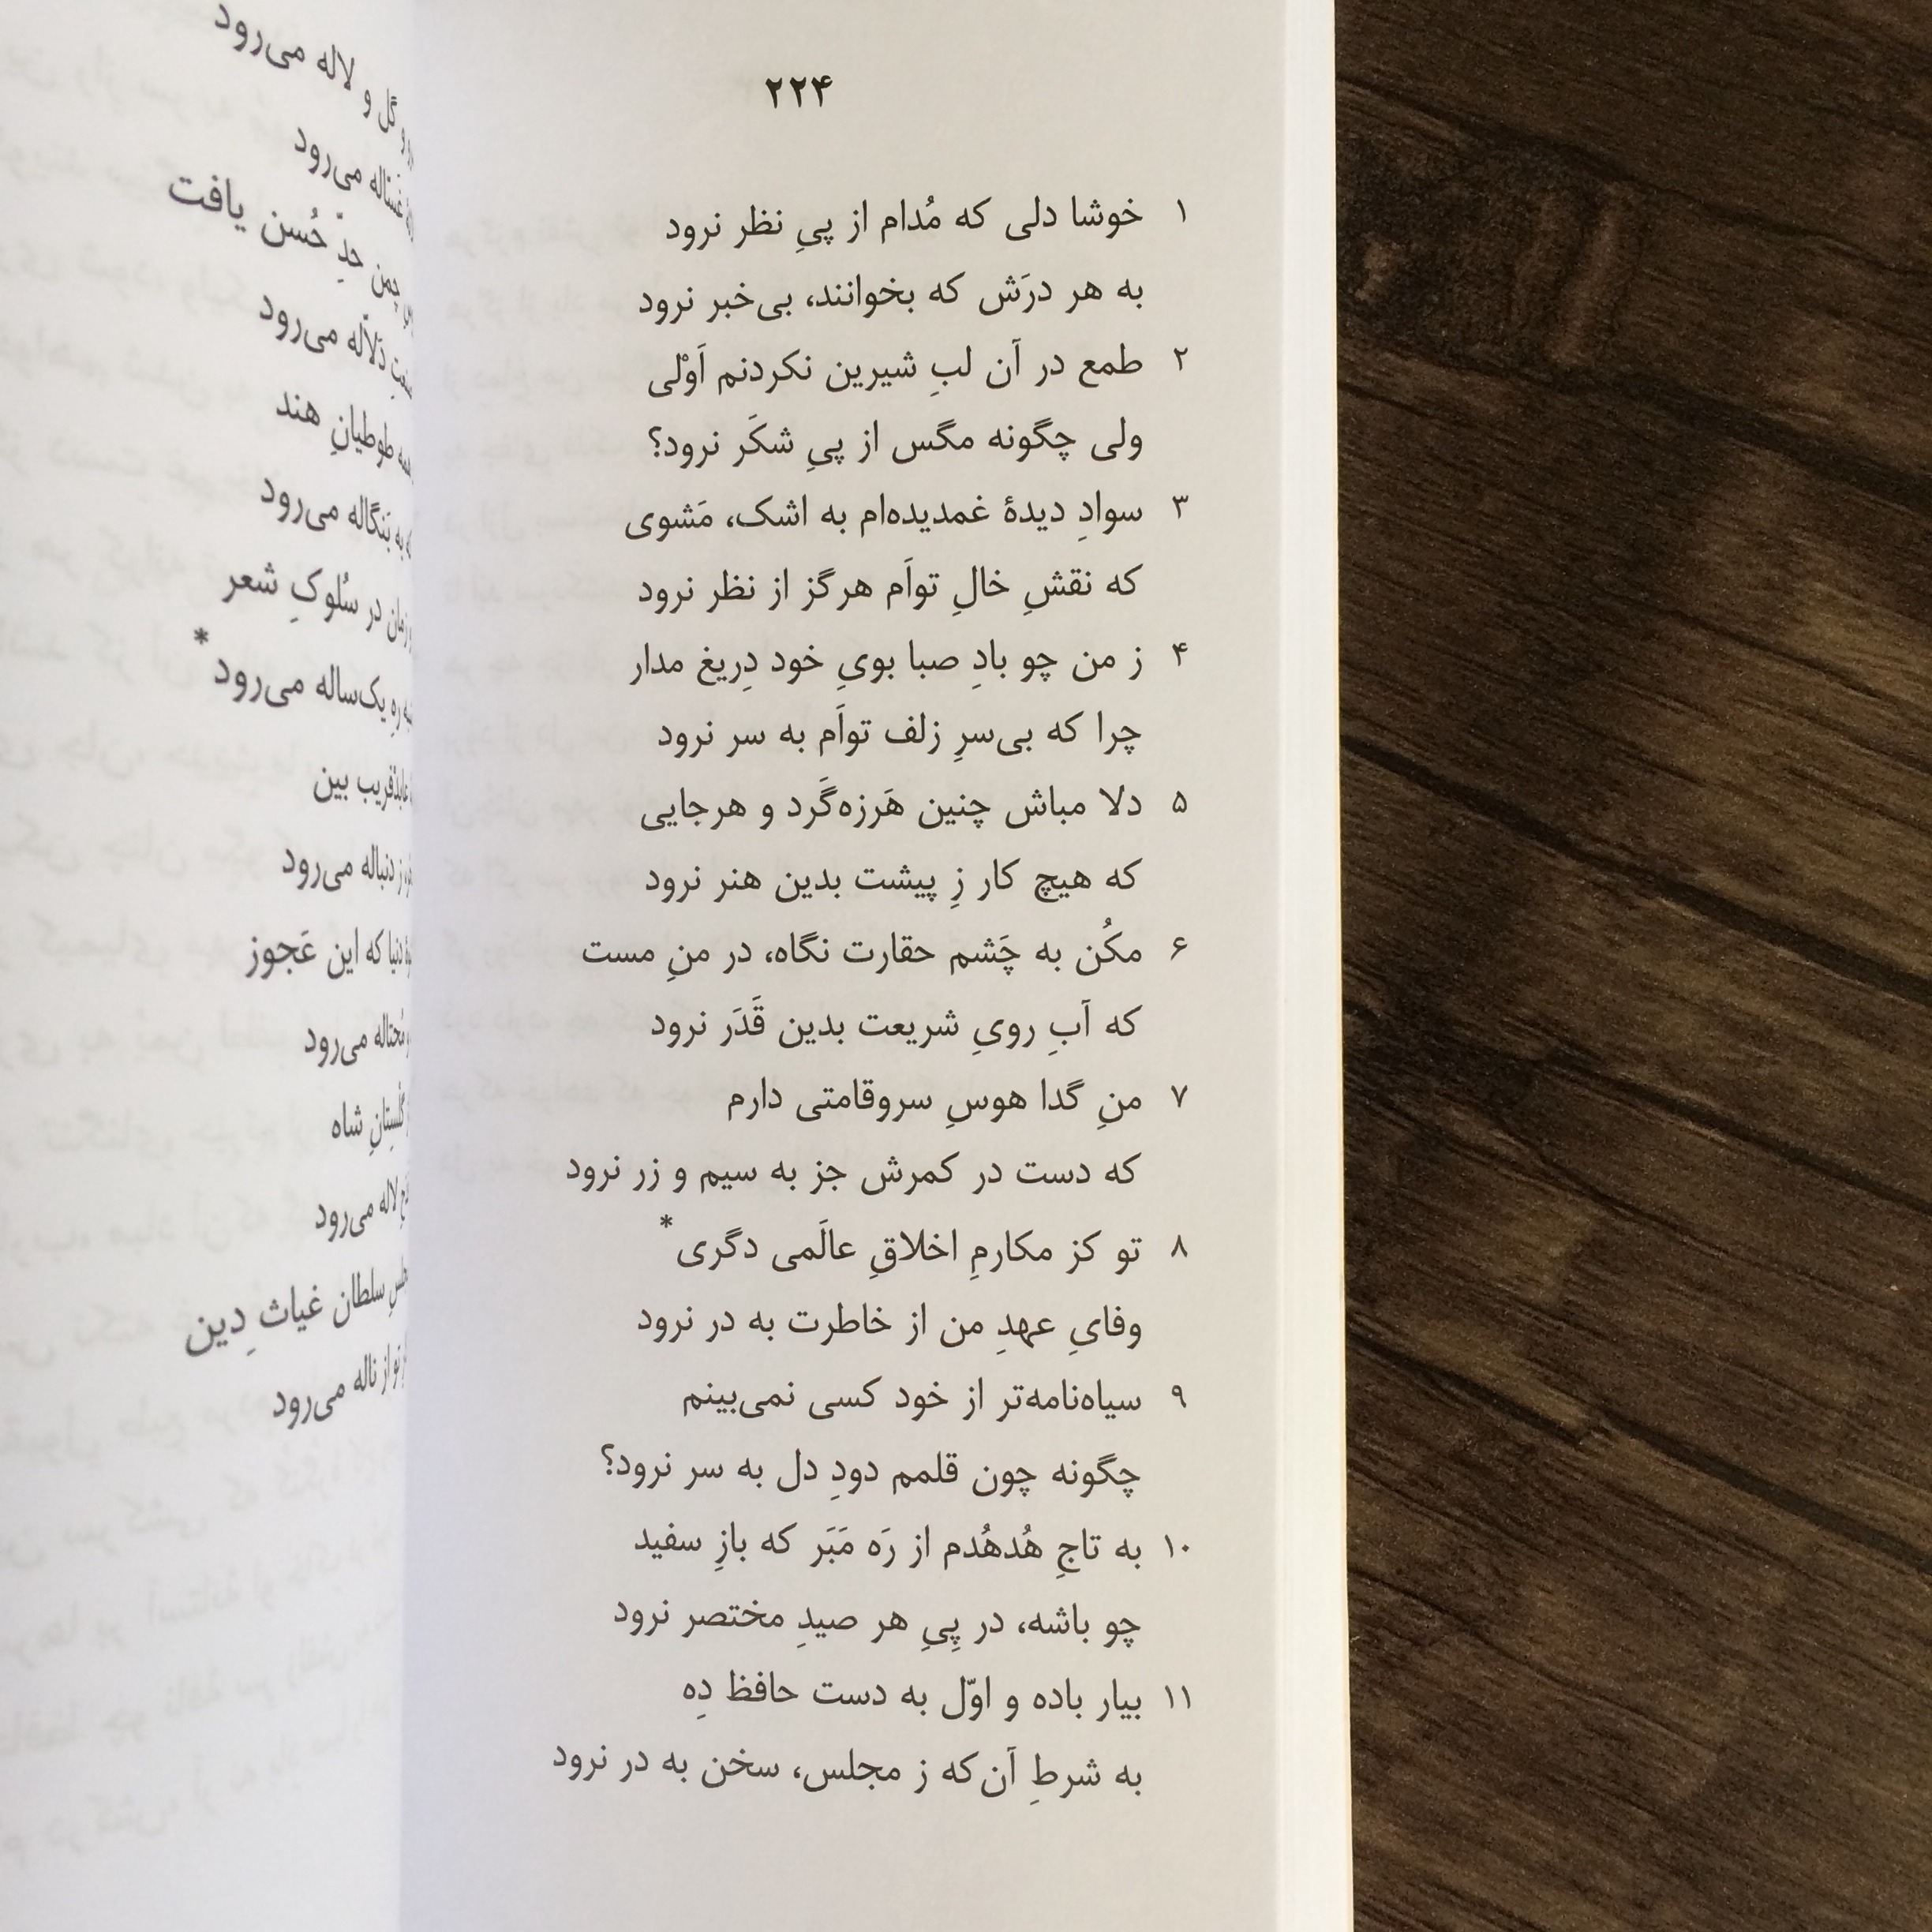 ۲۲۴
۱ خوشا دلی که مُدام از پیِ نظر نرود
به هر درَش که بخوانند، بی‌خبر نرود
۲ طمع در آن لبِ شیرین نکردنم اَوْلی
ولی چگونه مگس از پیِ شکَر نرود؟
۳ سوادِ دیدهٔ غمدیده‌ام به اشک، مَشوی
که نقشِ خالِ تواَم هرگز از نظر نرود
۴ ز من چو بادِ صبا بویِ خود دِریغ مدار
چرا که بی‌سرِ زلف تواَم به سر نرود
۵ دلا مباش چنین هَرزه‌گَرد و هرجایی
که هیچ کار زِ پیشت بدین هنر نرود
۶ مکُن به چَشم حقارت نگاه، در منِ مست
که آبِ رویِ شریعت بدین قَدَر نرود
۷ منِ گدا هوسِ سروقامتی دارم
که دست در کمرش جز به سیم و زر نرود
۸ تو کز مکارمِ اخلاقِ عالَمی دگری*
وفایِ عهدِ من از خاطرت به در نرود
۹ سیاه‌نامه‌تر از خود کسی نمی‌بینم
چگونه چون قلمم دودِ دل به سر نرود؟
۱۰ به تاجِ هُدهُدم از رَه مَبَر که بازِ سفید
چو باشه، در پِیِ هر صیدِ مختصر نرود
۱۱ بیار باده و اوّل به دست حافظ دِه
به شرطِ آن‌که ز مجلس، سخن به در نرود
گل و لاله می‌رود
غسّاله می‌رود
چمن حدِّ حُسن یافت
دَلاّله می‌رود
طوطیانِ هند
به بَنگاله می‌رود
در سُلوکِ شعر
رهِ یک‌ساله می‌رود*
بین
ز دنباله می‌رود
دنیا که این عَجوز
مُحتاله می‌رود
گلستانِ شاه
لاله می‌رود
سلطان غیاث دِین
تو از ناله می‌رود